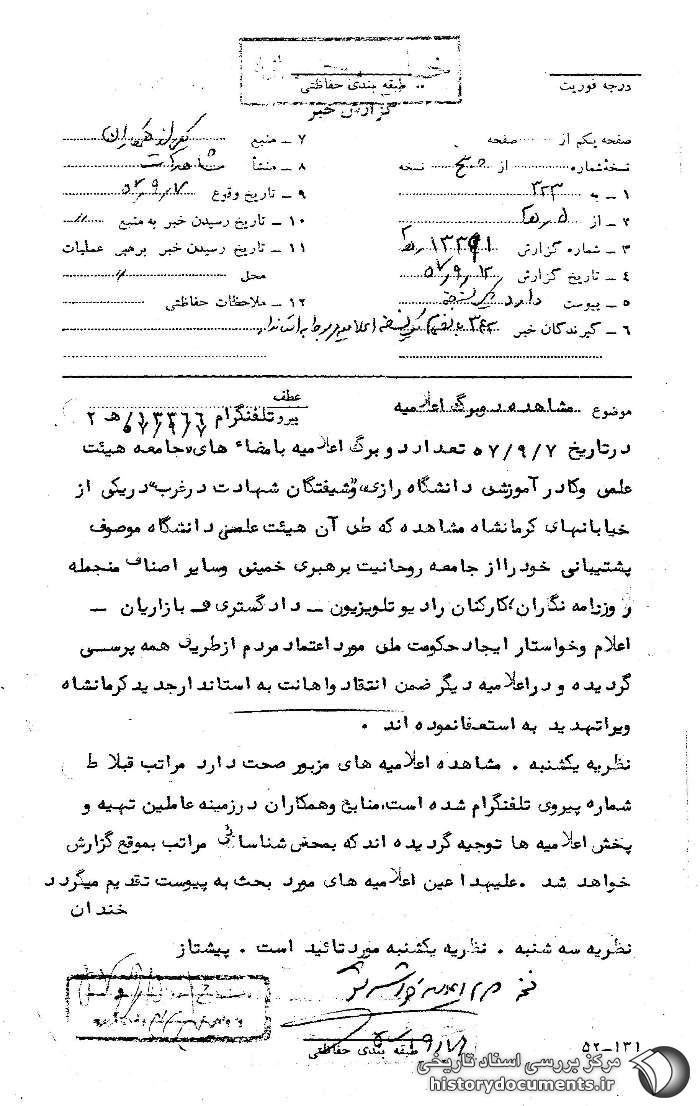 درجه فوریت
طبقه بندی حفاظتی
گزارش خبر
صفحه یکم از صفحه
نسخه شماره از پنج نسخه
۱ ـ به ۳۲۳
۲ ـ از ۵ ه
۳ ـ شماره گزارش
۴ ـ تاریخ گزارش ۵۷/۹/۱۲
۵ ـ پیوست دارد
۶ ـ گیرندگان خبر
۷ ـ منبع
۸ ـ منشأ
۹ ـ تاریخ وقوع ۵۷/۹/۷
۱۰ ـ تاریخ رسیدن خبر به منبع //
۱۱ ـ تاریخ رسیدن خبر برهبر عملیات
محل //
۱۲ ـ ملاحظات حفاظتی
موضوع مشاهده دو برگ اعلامیه
عطف
پیرو تلفنگرام ۱۳۳۶۶/ه ۲
۵۷/۹/۷
درتاریخ ۵۷/۹/۷ تعداد دو برگ اعلامیه با مضاء های «جامعه هیئت
علمی وکادر آموزشی دانشگاه رازی» و «شیفتگان شهادت در غرب» دریکی از
خیابانهای کرمانشاه مشاهده که طی آن هیئت علمی دانشگاه موصوف
پشتیبانی خود را از جامعه روحانیت برهبری خمینی وسایر اصناف منجمله
روزنامه نگاران، کارکنان رادیو تلویزیون ـ دادگستری و بازاریان ـ
اعلام وخواستار ایجاد حکومت ملی مورد اعتماد مردم از طریق همه پرسی
گردیده و در اعلامیه دیگر ضمن انتقاد واهانت به استاندار جدید کرمانشاه
ویرا تهدید به استعفا نموده اند .
نظریه یکشنبه . مشاهده اعلامیه های مزبور صحت دارد مراتب قبلا ط
شماره پیروی تلفنگرام شده است، منابع وهمکاران در زمینه عاملین تهیه و
پخش اعلامیه ها توجیه گردیده اند که بمحض شناسائی مراتب بموقع گزارش
خواهد شد . علیهذا عین اعلامیه های مورد بحث به پیوست تقدیم میگردد
خندان
نظریه سه شنبه . نظریه یکشنبه مورد تائید است . پیشتاز
طبقه بندی حفاظتی
۵۲-۱۳۱
مرکز بررسی اسناد تاریخی
historydocuments.ir